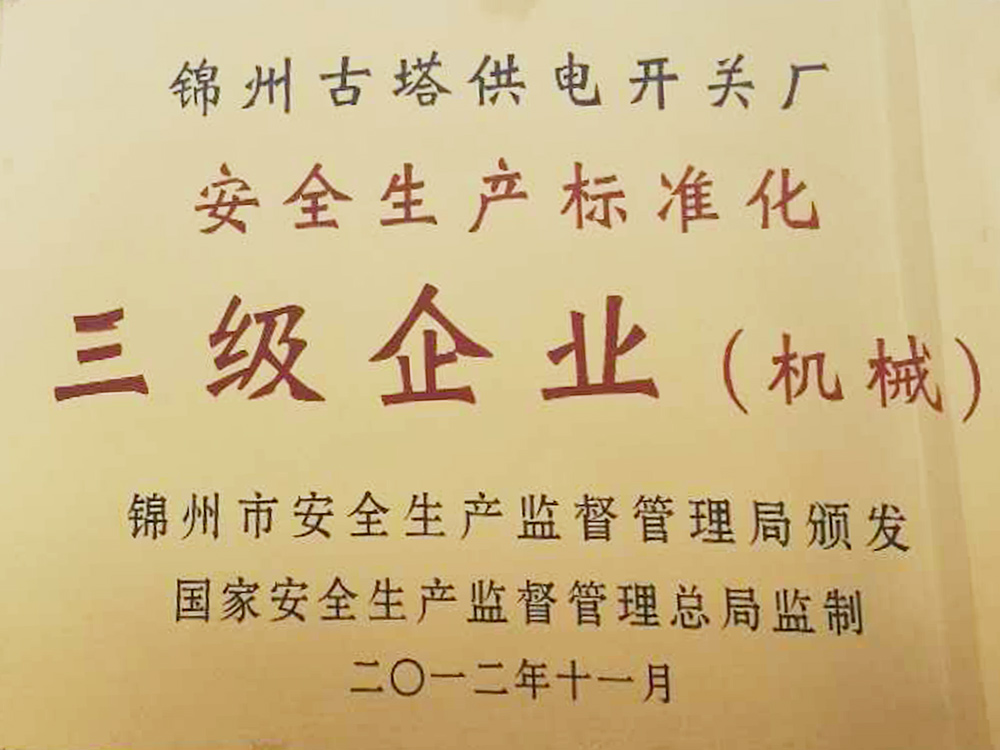 锦州古塔供电开关厂
安全生产标准化
三级企业（机械）
锦州市安全生产监督管理局颁发
国家安全生产监督管理总局监制
二〇一二年十一月